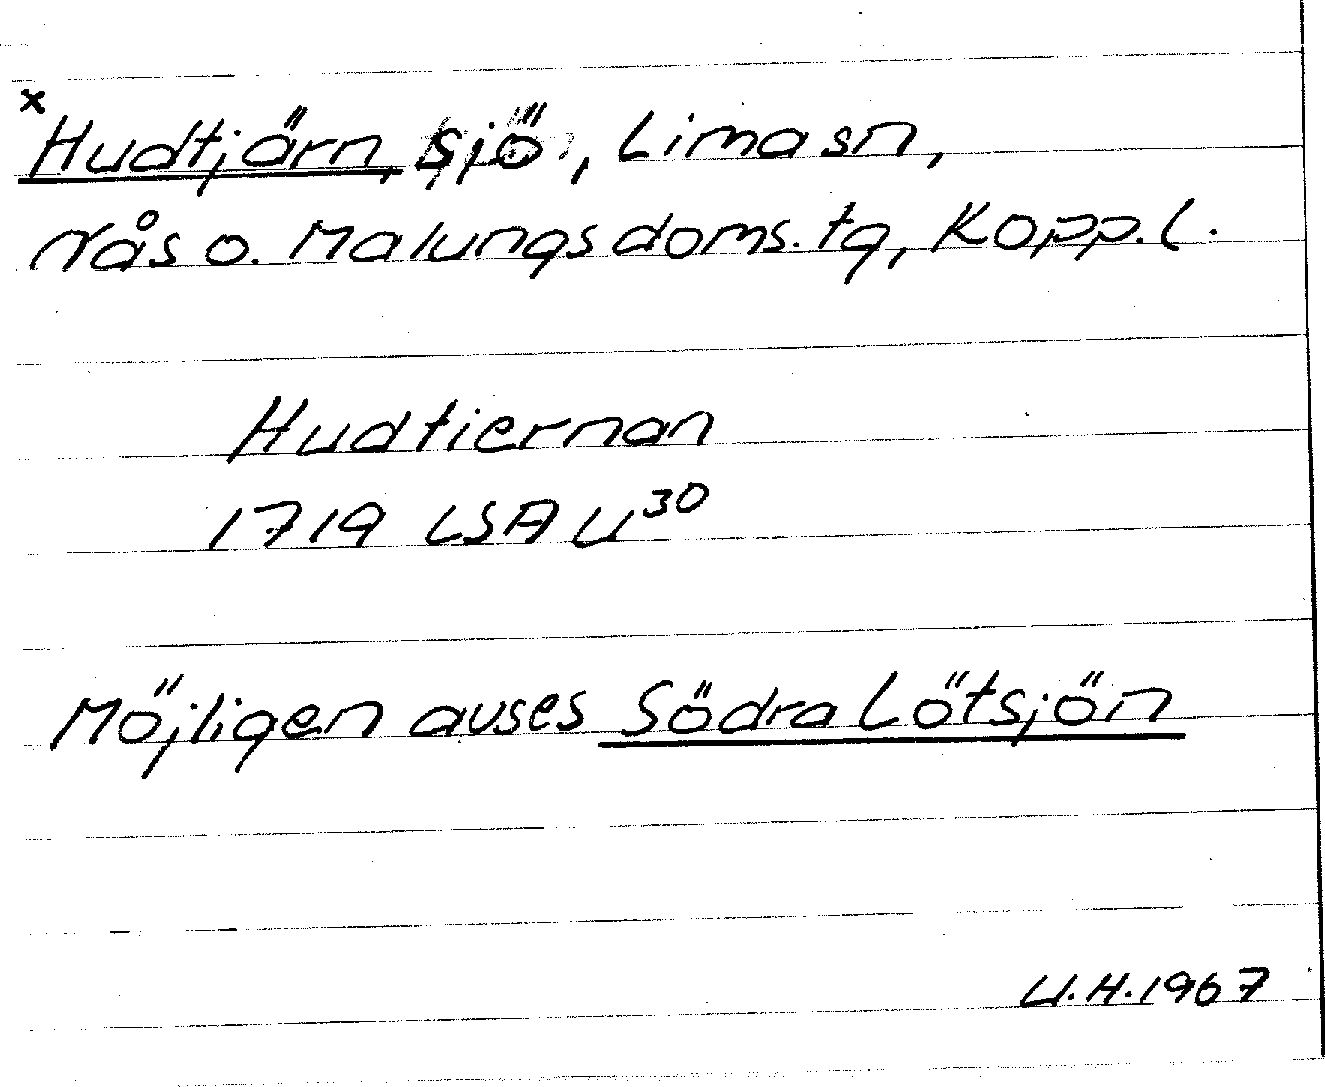 x Hudtjärn, sjö, Lima sn,
Nås o. Malungs doms. tg, Kopp. l.
Hudtiernan
1719 LSA U30
Möjligen avses Södra Lötsjön
U.H. 1967